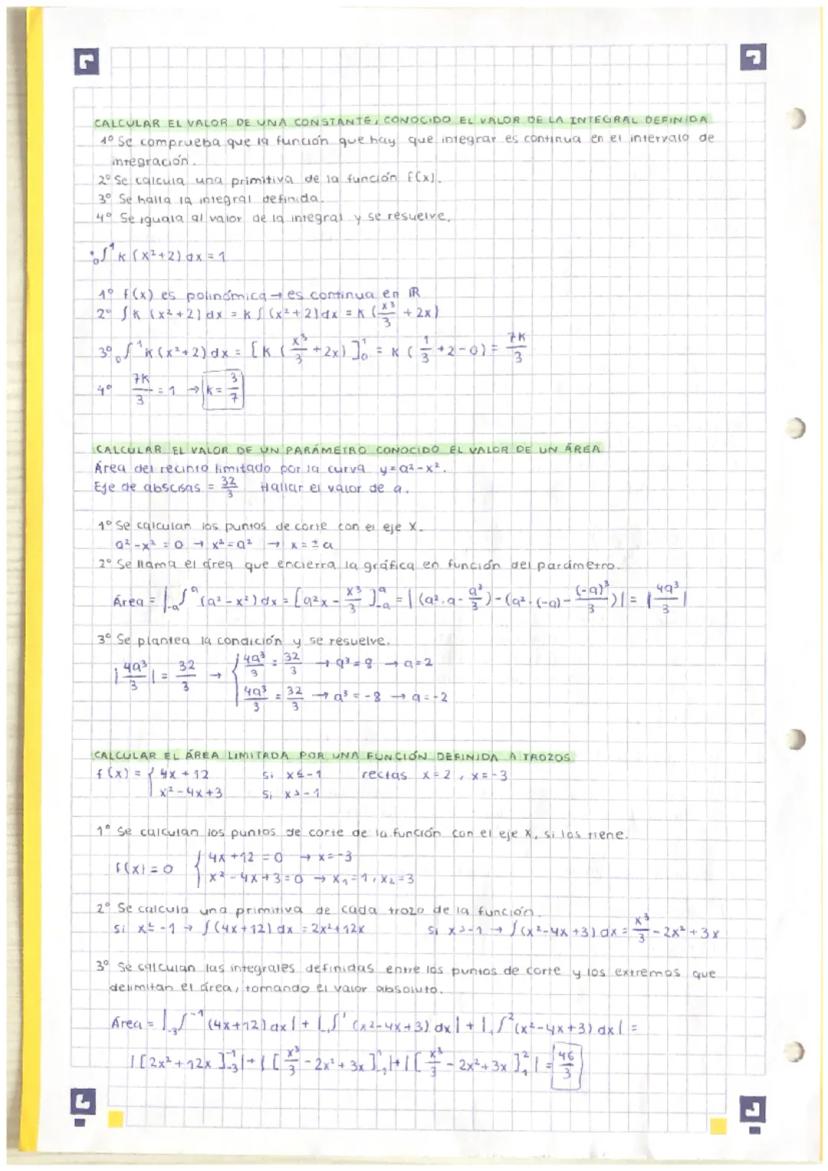 CALCULAR EL VALOR DE UNA CONSTANTE, CONOCIDO EL VALOR DE LA INTEGRAL DEFINIDA
1º Se comprueba que la función que hay que integrar es continua en el intervalo de
integración.
2º Se calcula una primitiva de la función f(x).
3º Se halla la integral definida.
4º Se iguala al valor de la integral y se resuelve.
• ₀∫¹ K (x²+2) dx = 1
1º f(x) es polinómica → es continua en ℝ
2º ∫K (x²+2) dx = K ∫(x²+2) dx = K (x³/3 + 2x)
3º ₀∫¹ K (x²+2) dx = [K (x³/3 + 2x)]₀¹ = K (1/3 + 2 - 0) = 7K/3
4º 7K/3 = 1 → K = 3/7
CALCULAR EL VALOR DE UN PARÁMETRO CONOCIDO EL VALOR DE UN ÁREA
Área del recinto limitado por la curva y=a²-x².
Eje de abscisas = 32/3 Hallar el valor de a.
1º Se calculan los puntos de corte con el eje X.
a²-x² = 0 → x²=a² → x = ±a
2º Se llama el área que encierra la gráfica en función del parámetro.
Área = |₋ₐ∫ᵃ (a²-x²) dx = [a²x - x³/3]₋ₐᵃ = |(a²·a - a³/3) - (a²·(-a) - (-a)³/3)| = |4a³/3|
3º Se plantea la condición y se resuelve.
|4a³/3| = 32/3 → { 4a³/3 = 32/3 → a³ = 8 → a=2
4a³/3 = 32/3 → a³ = -8 → a=-2
CALCULAR EL ÁREA LIMITADA POR UNA FUNCIÓN DEFINIDA A TROZOS
f(x) = { 4x + 12 si x≤-1 rectas x=2, x=-3
x²-4x+3 si x>-1
1º Se calculan los puntos de corte de la función con el eje X, si los tiene.
f(x) = 0 { 4x+12 = 0 → x=-3
x²-4x+3=0 → x₁=1, x₂=3
2º Se calcula una primitiva de cada trozo de la función.
Si x≤-1 → ∫(4x+12) dx = 2x²+12x Si x>-1 → ∫(x²-4x+3) dx = x³/3 - 2x² + 3x
3º Se calculan las integrales definidas entre los puntos de corte y los extremos que
delimitan el área, tomando el valor absoluto.
Área = |₋₃∫⁻¹ (4x+12) dx| + |₋₁∫¹ (x²-4x+3) dx| + |₁∫² (x²-4x+3) dx| =
|[2x²+12x]₋₃⁻¹| + |[x³/3 - 2x² + 3x]₋₁¹| + |[x³/3 - 2x² + 3x]₁²| = 46/3